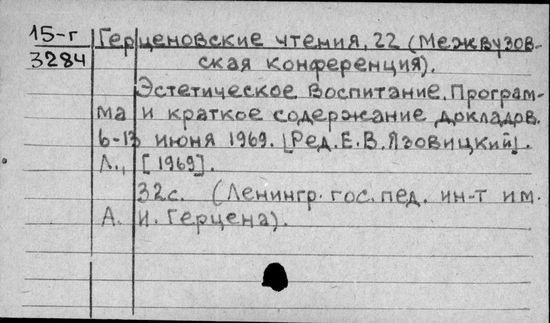 15-г Герценовские чтения, 22 (Межвузов-
3284 ская конференция).
Эстетическое воспитание. Програм-
ма и краткое содержание докладов.
6-13 июня 1969. [Ред. Е. В. Язовицкий].
Л., [1969].
32с. (Ленингр. гос. пед. ин-т им.
А. И. Герцена).